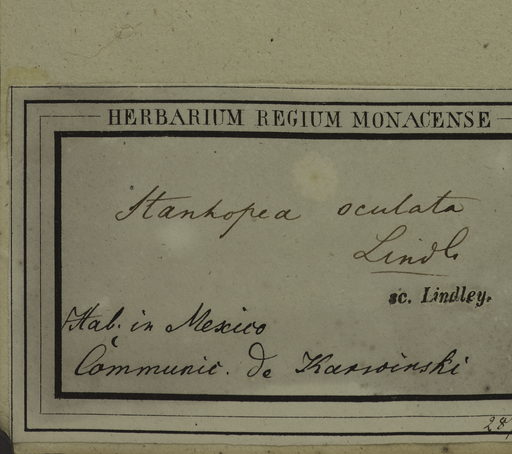 HERBARIUM REGIUM MONACENSE
Stanhopea oculata
Lindl.
sc. Lindley.
Hab. in Mexico
Communic. de Karwinski
28